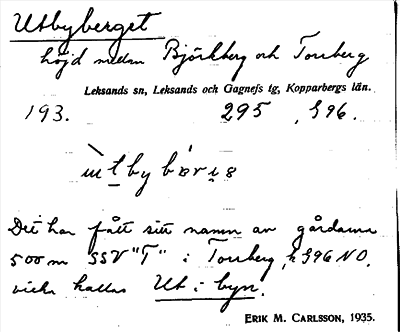 Utbyberget
höjd mellan Björkberg och Torsberg
Leksands sn, Leksands och Gagnefs tg, Kopparbergs län.
193. 295 , 396.
Det har fått sitt namn av gårdarna
500 m SSV "T" i Torsberg, k 396 NO,
vilka kallas Ut i byn.
ERIK M. CARLSSON, 1935.